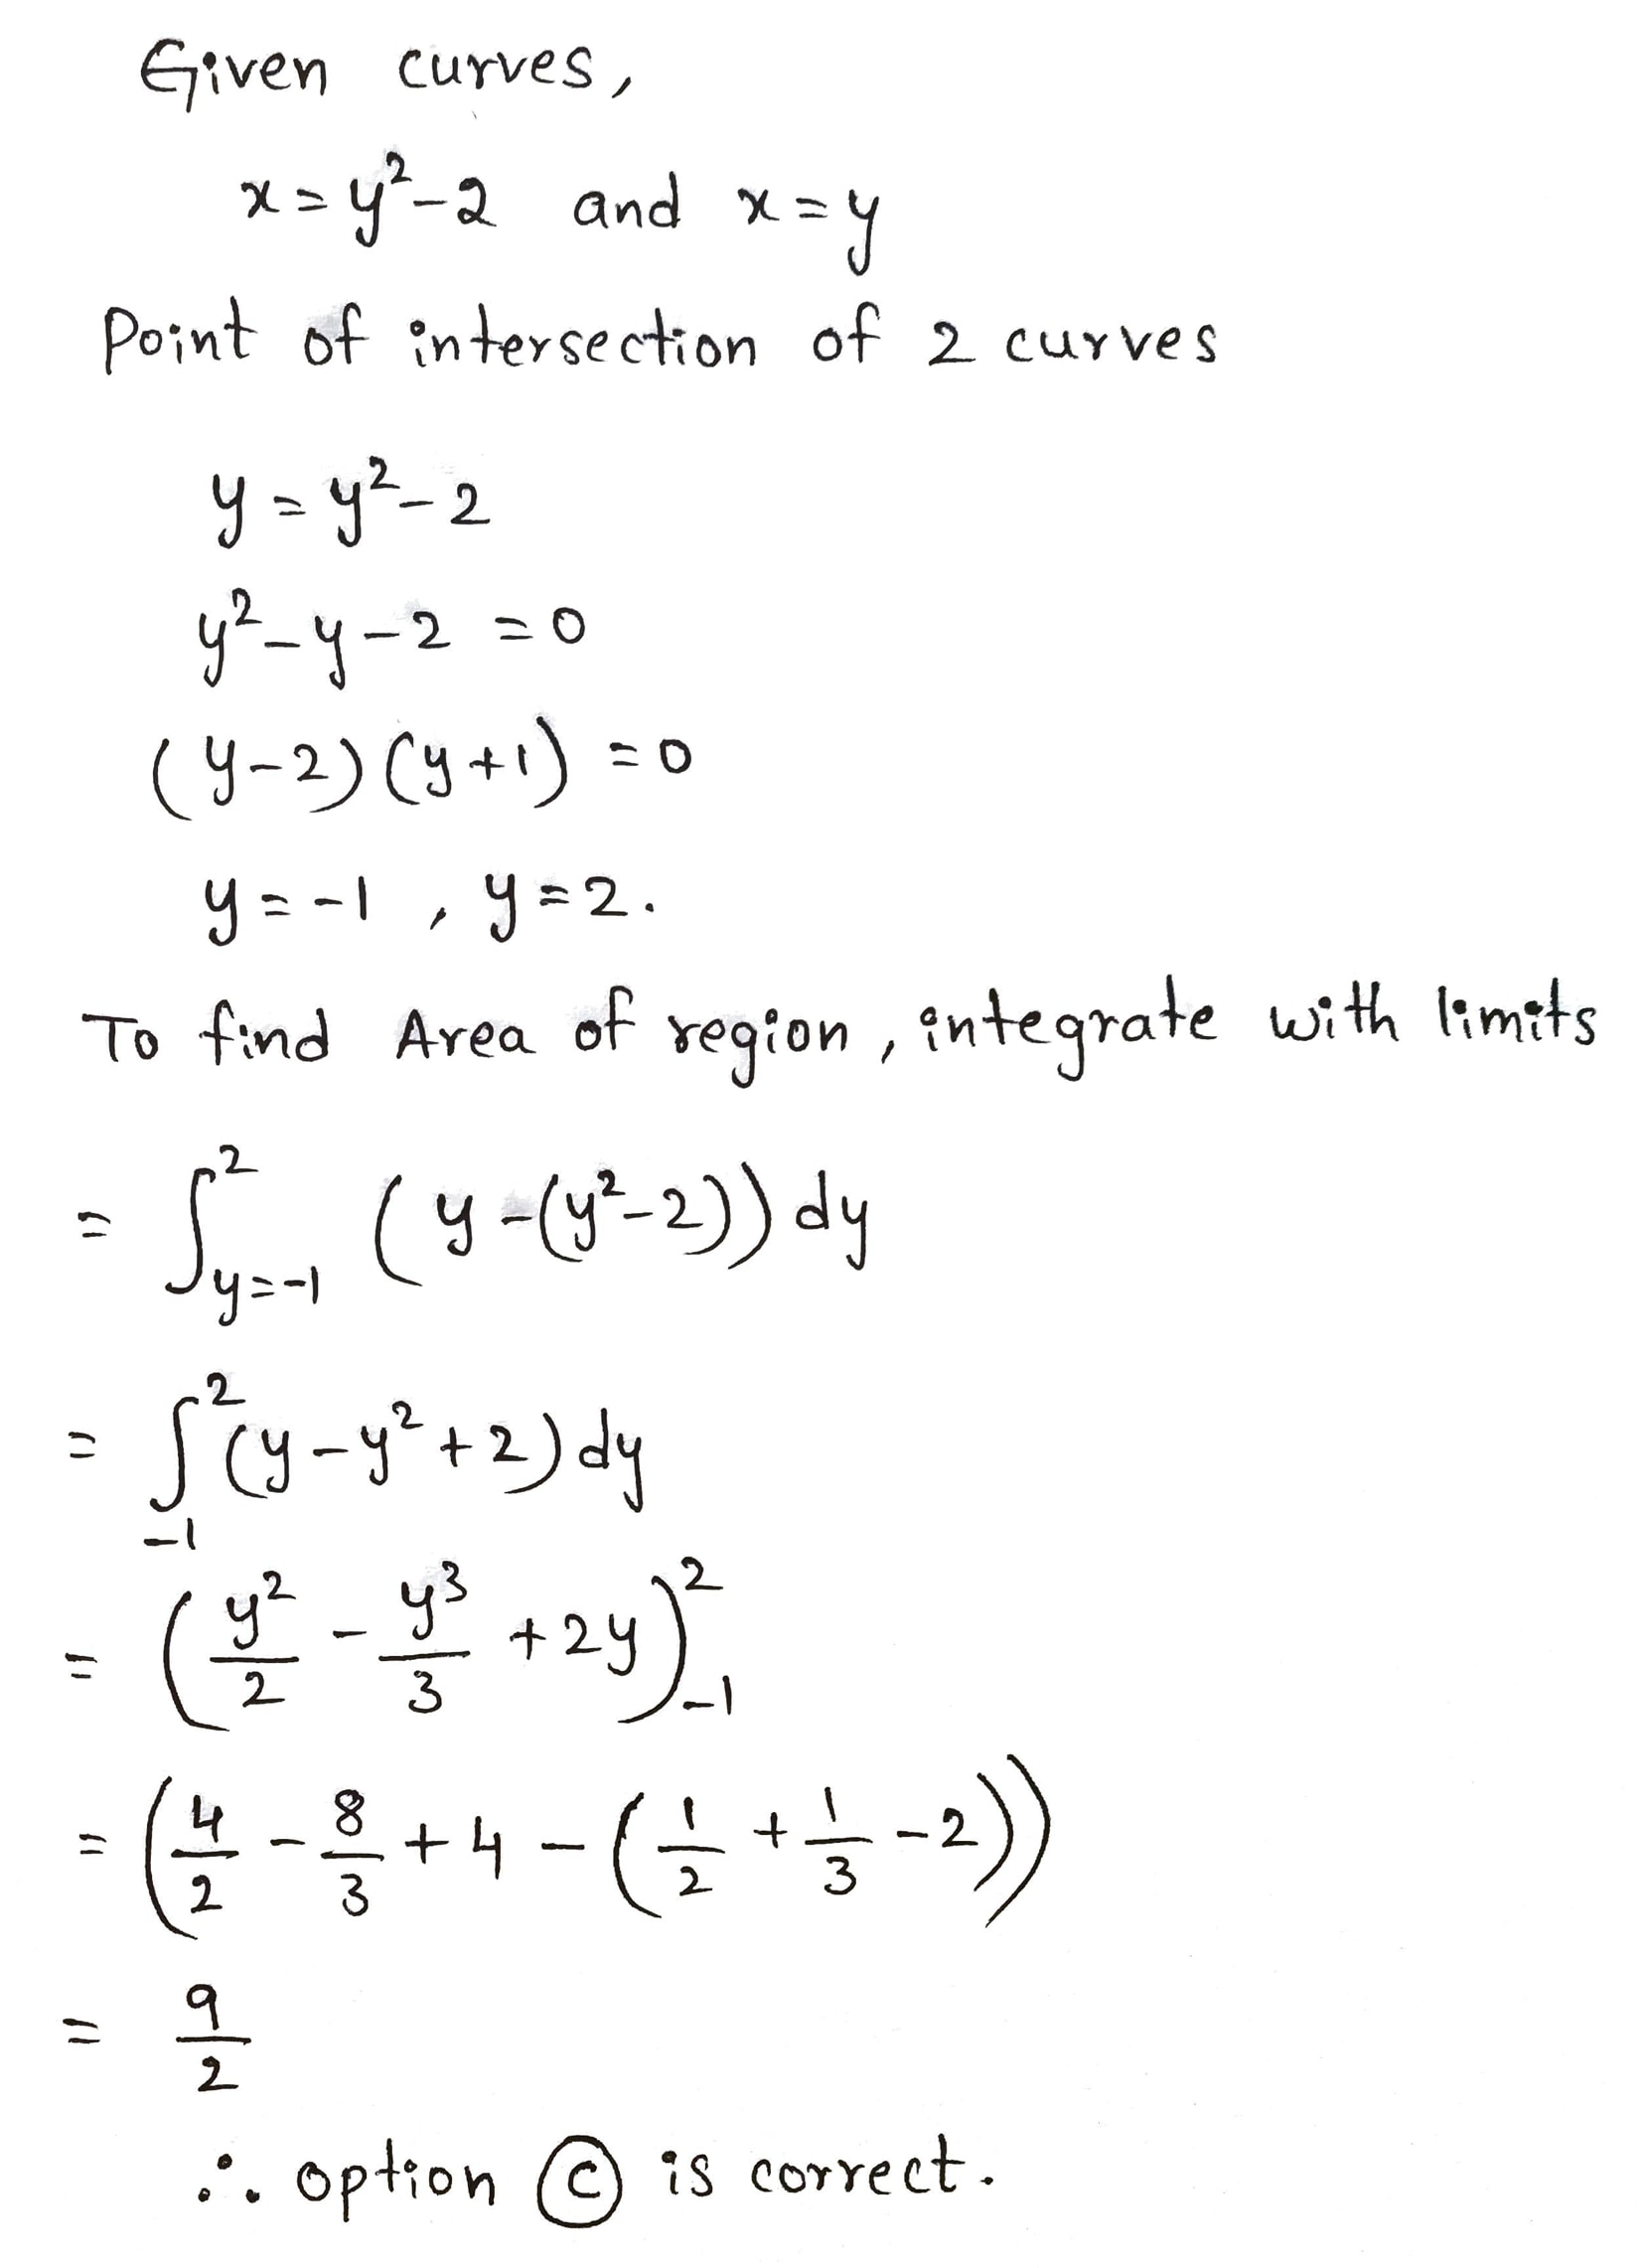 Given curves,
x = y² - 2 and x = y
Point of intersection of 2 curves
y = y² - 2
y² - y - 2 = 0
(y - 2)(y + 1) = 0
y = -1 , y = 2.
To find Area of region, integrate with limits
= ∫_{y=-1}^{2} (y - (y² - 2)) dy
= ∫_{-1}^{2} (y - y² + 2) dy
= (y²/2 - y³/3 + 2y)_{-1}^{2}
= (4/2 - 8/3 + 4 - (1/2 + 1/3 - 2))
= 9/2
∴ option Ⓒ is correct.